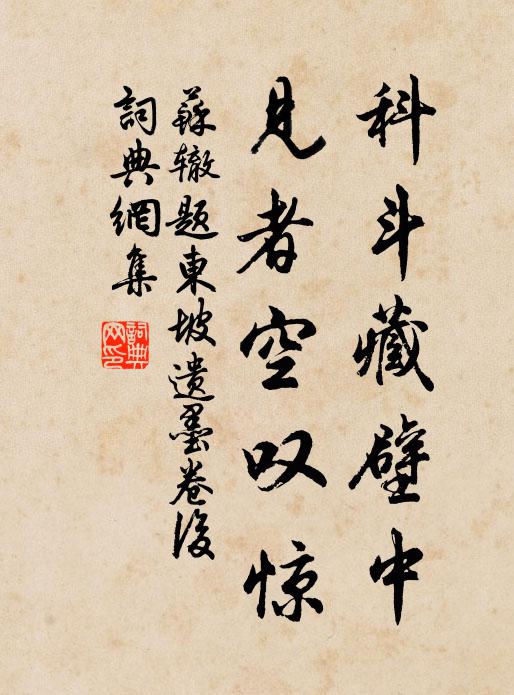 科斗藏壁中
见者空叹惊
蘇辙题東坡遗墨卷後
詞典網集
詞典網印